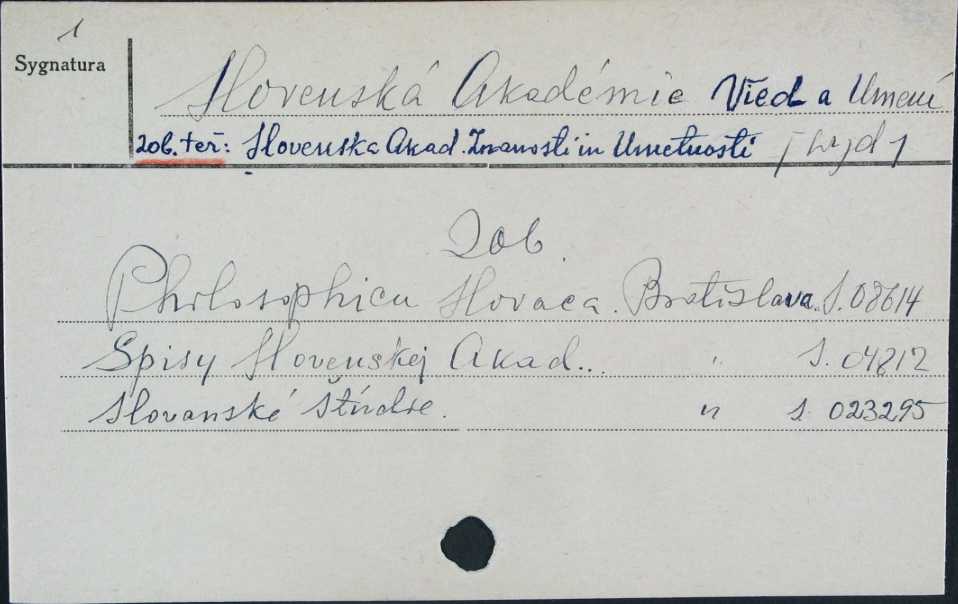 1
Sygnatura
Slovenská Akadémie Vied a Umení
zob. też: Slovenska Akad. Znanosti in Umetnosti /wyd/
Zob.
Philosophica Slovaca. Bratislava. S. 08614
Spisy Slovenskej Akad... " S. 04812
Slovanské Štúdie. " S. 023295